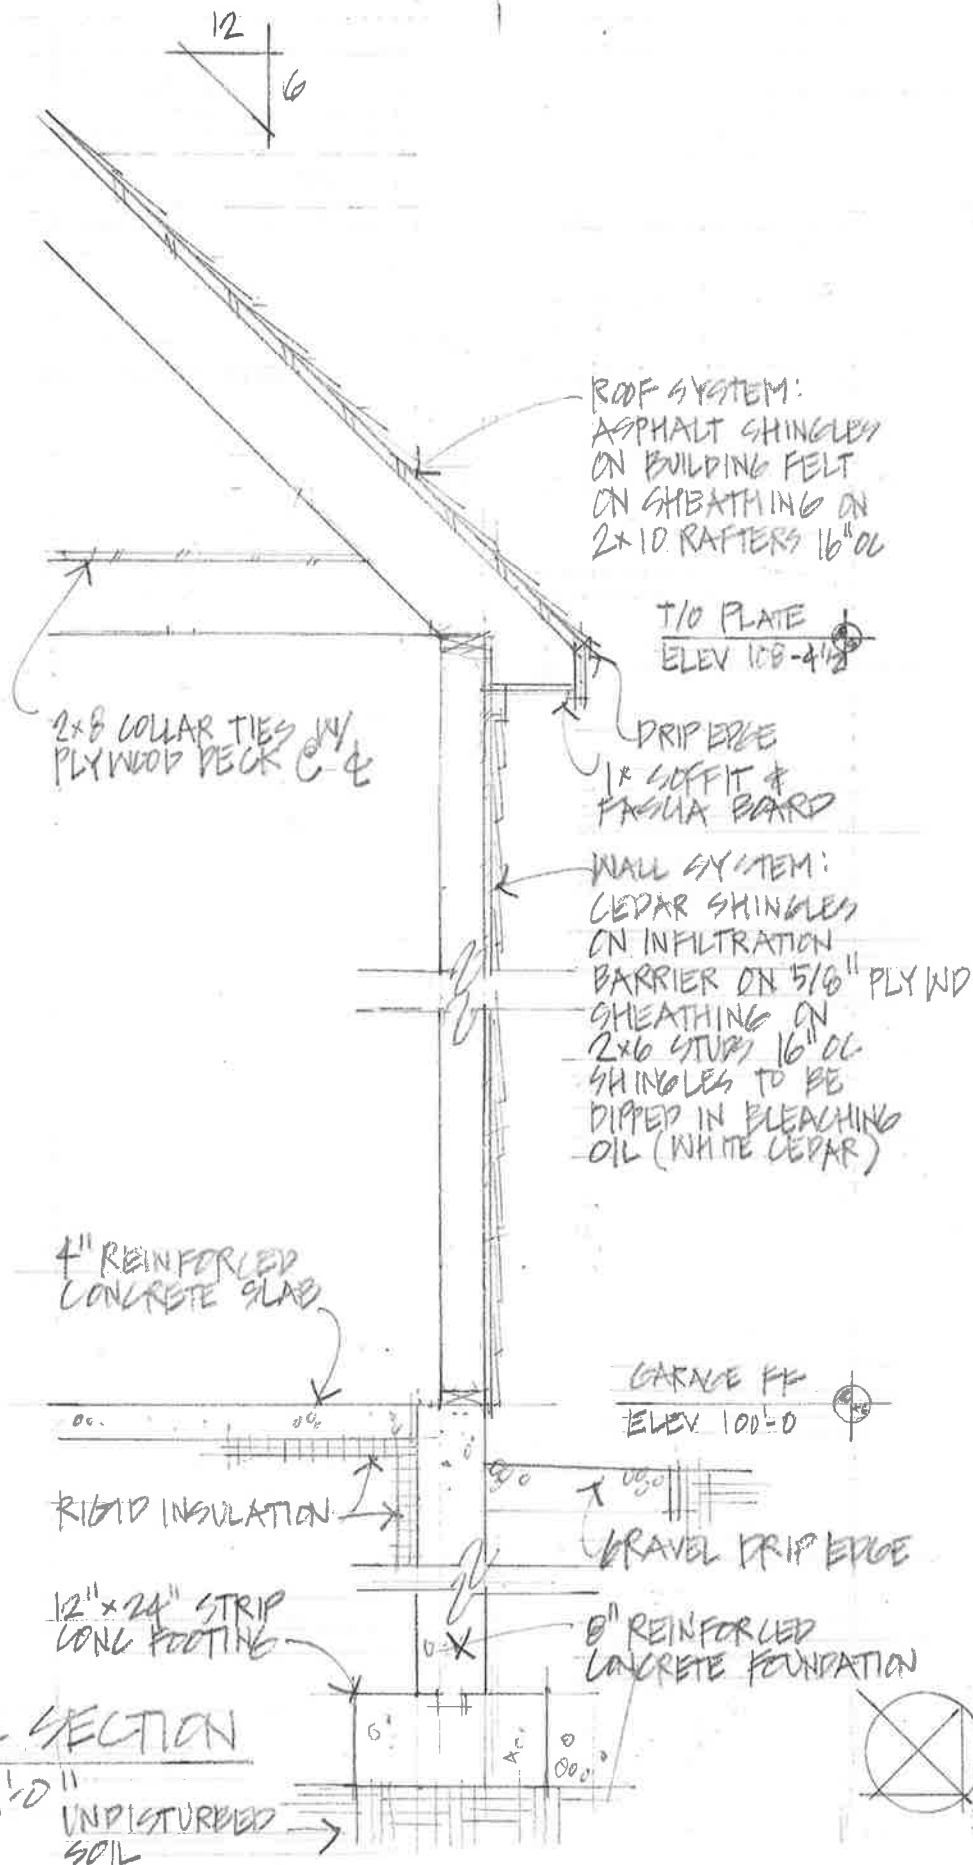 12
6
ROOF SYSTEM:
ASPHALT SHINGLES
ON BUILDING FELT
ON SHEATHING ON
2x10 RAFTERS 16" OC
T/O PLATE
ELEV 108-4 1/2
2x8 COLLAR TIES W/
PLYWOOD DECK @ ℄
DRIP EDGE
1x SOFFIT &
FASCIA BOARD
WALL SYSTEM:
CEDAR SHINGLES
ON INFILTRATION
BARRIER ON 5/8" PLYWD
SHEATHING ON
2x6 STUDS 16" OC
SHINGLES TO BE
DIPPED IN BLEACHING
OIL (WHITE CEDAR)
4" REINFORCED
CONCRETE SLAB
GARAGE FF
ELEV 100'-0
RIGID INSULATION
GRAVEL DRIP EDGE
12" x 24" STRIP
CONC FOOTING
8" REINFORCED
CONCRETE FOUNDATION
SECTION
'-0"
UNDISTURBED
SOIL